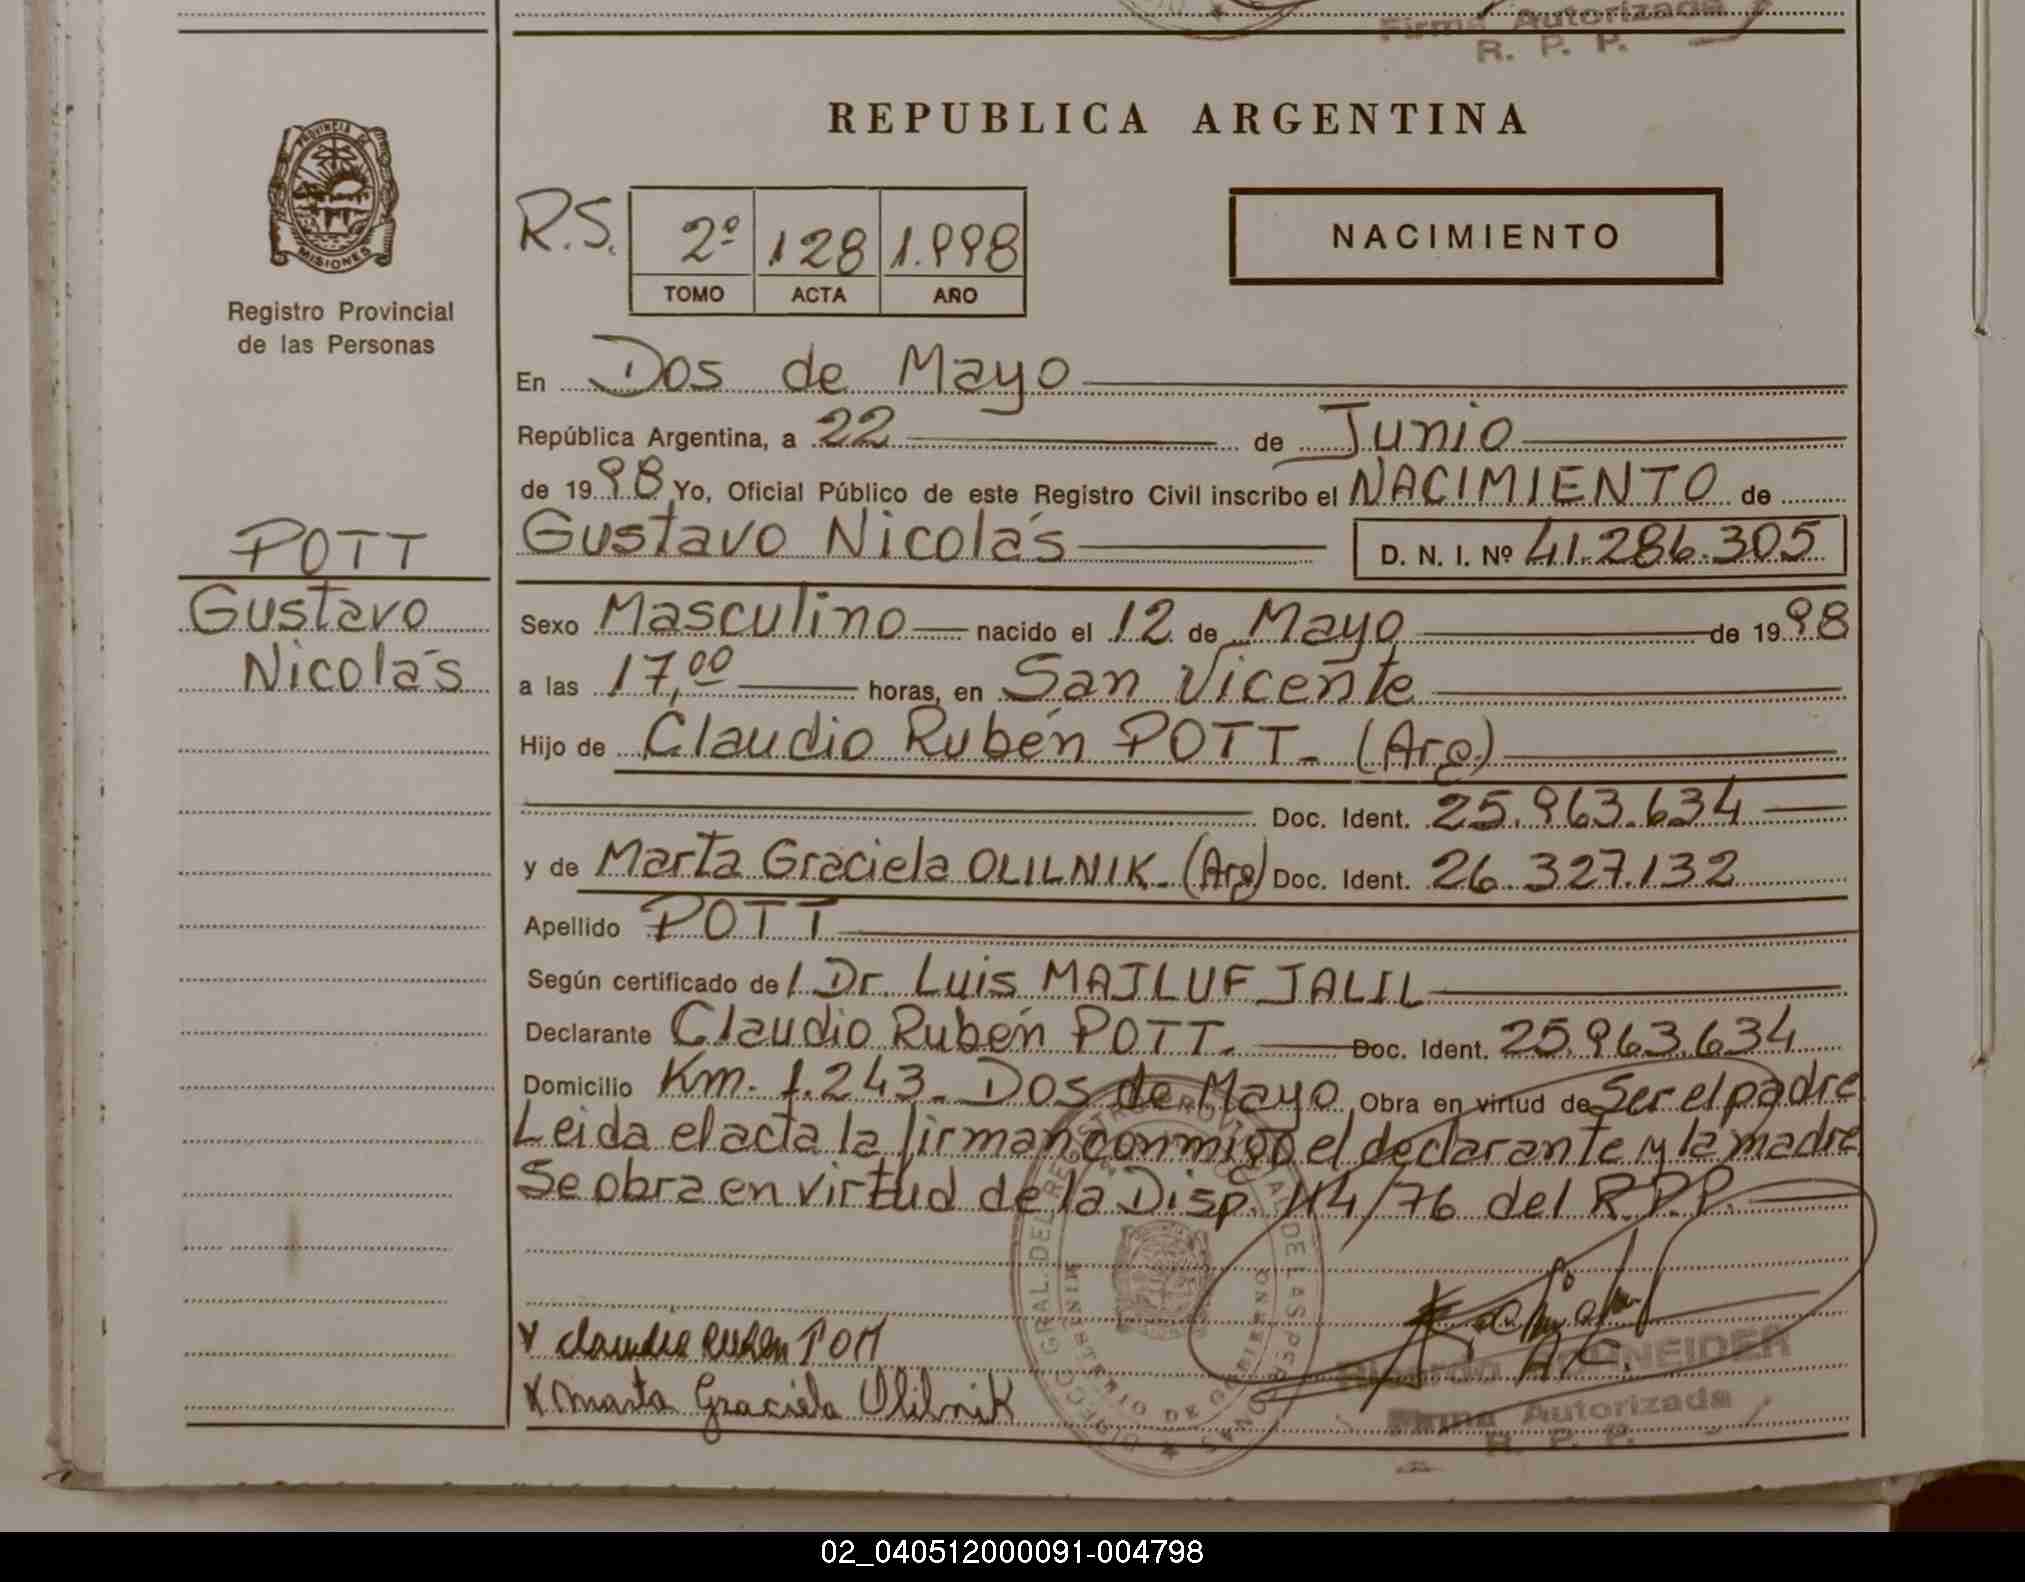 Firma Autorizada
R. P. P.
REPUBLICA ARGENTINA
PROVINCIA DE
MISIONES
Registro Provincial
de las Personas
R.S. 2º 128 1.998
TOMO ACTA AÑO
NACIMIENTO
En Dos de Mayo
República Argentina, a 22 de Junio
de 1998 Yo, Oficial Público de este Registro Civil inscribo el NACIMIENTO de
POTT
Gustavo
Nicolás
Gustavo Nicolás D. N. I. Nº 41.286.305
Sexo Masculino nacido el 12 de Mayo de 1998
a las 17,00 horas, en San Vicente
Hijo de Claudio Rubén POTT - (Arg)
Doc. Ident. 25.963.634
y de Marta Graciela OLILNIK - (Arg) Doc. Ident. 26.327.132
Apellido POTT
Según certificado de / Dr. Luis MAJLUF JALIL
Declarante Claudio Rubén POTT. Doc. Ident. 25.963.634
Domicilio Km. 1.243 - Dos de Mayo Obra en virtud de Ser el padre
Leida el acta la firman conmigo el declarante y la madre
Se obra en virtud de la Disp. 44/76 del R.P.P.
x Claudio Ruben POTT
x Marta Graciela Olilnik
DIRECC. GRAL. DEL REGISTRO PROVINCIAL DE LAS PERSONAS
MINISTERIO DE GOBIERNO
Ricardo SCHNEIDER
Firma Autorizada
R. P. P.
02_040512000091-004798